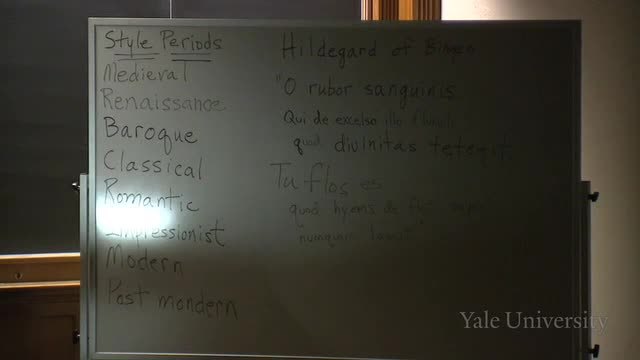 Style Periods
Medieval
Renaissance
Baroque
Classical
Romantic
Impressionist
Modern
Post mondern
Hildegard of Bingen
"O rubor sanguinis
Qui de excelso illo
quod divinitas tetegit
Tu flos es
quod hyems de
numquam
Yale University